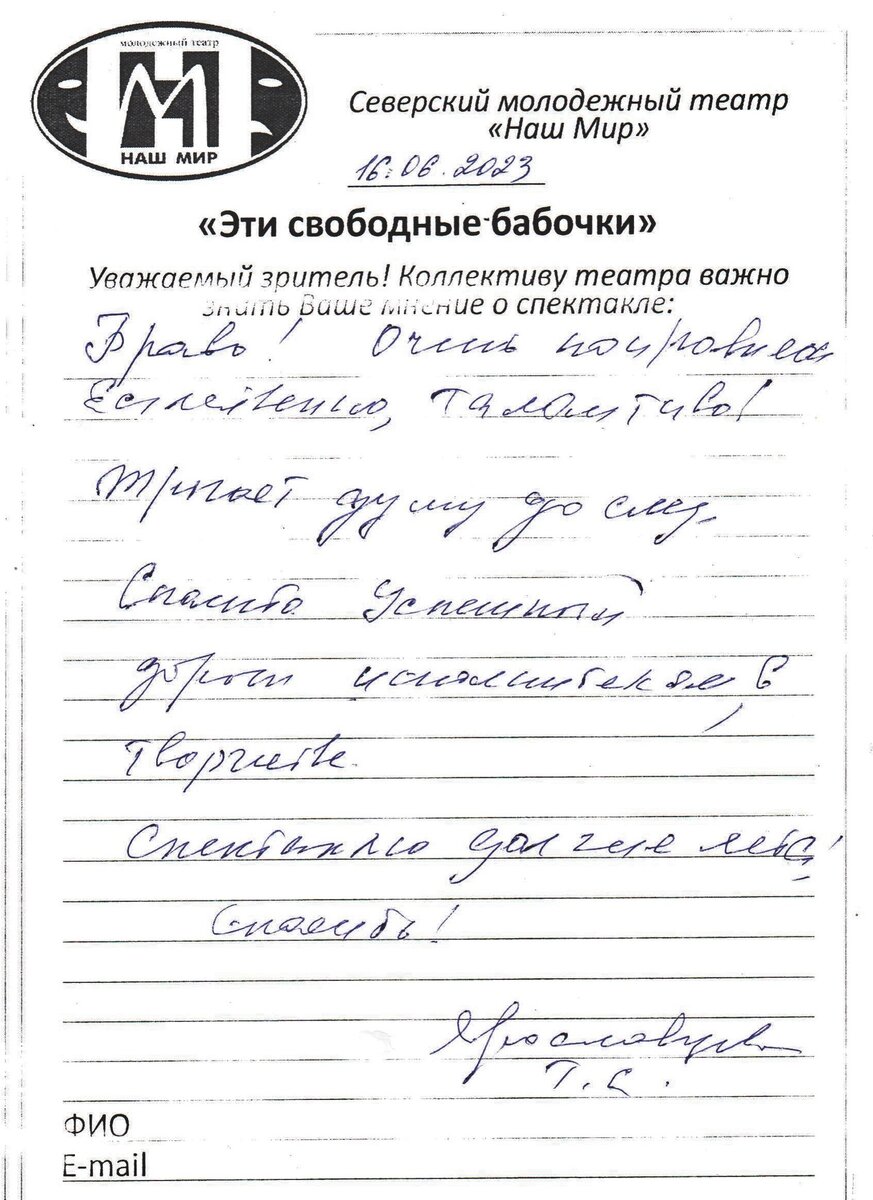 молодежный театр
НАШ МИР
Северский молодежный театр
«Наш Мир»
16.06.2023
«Эти свободные бабочки»
Уважаемый зритель! Коллективу театра важно
знать Ваше мнение о спектакле:
Браво! Очень понравилось
Естественно, талантливо!
Трогает душу до слез.
Спасибо Успешный
дороги исполнителям, в
творчестве.
Спектаклю долгие лета!
Спасибо!
Ярославцева
Т.С.
ФИО
E-mail